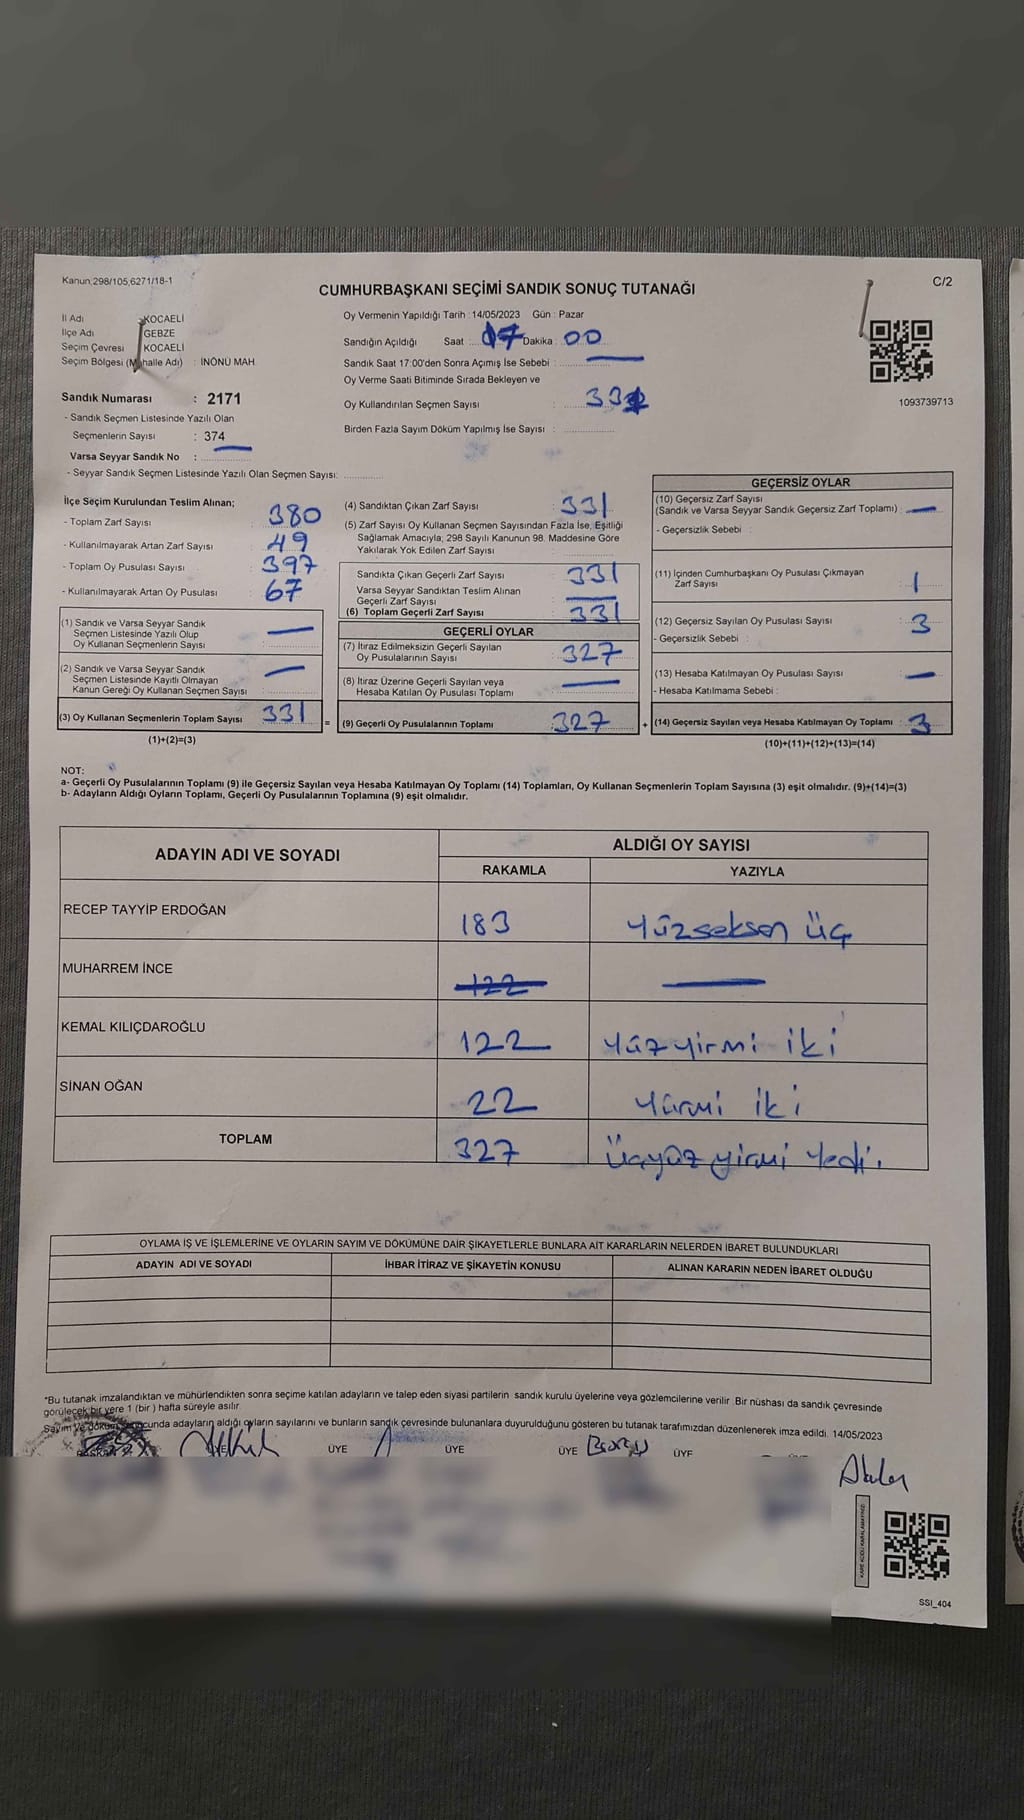 Kanun 298/105,6271/18-1
C/2
CUMHURBAŞKANI SEÇİMİ SANDIK SONUÇ TUTANAĞI
İl Adı : KOCAELİ
İlçe Adı : GEBZE
Seçim Çevresi : KOCAELİ
Seçim Bölgesi (Mahalle Adı) : İNÖNÜ MAH
Sandık Numarası : 2171
- Sandık Seçmen Listesinde Yazılı Olan
Seçmenlerin Sayısı : 374
Varsa Seyyar Sandık No :
- Seyyar Sandık Seçmen Listesinde Yazılı Olan Seçmen Sayısı:
Oy Vermenin Yapıldığı Tarih : 14/05/2023 Gün : Pazar
Sandığın Açıldığı Saat : 17 Dakika : 00
Sandık Saat 17:00'den Sonra Açımış İse Sebebi :
Oy Verme Saati Bitiminde Sırada Bekleyen ve
Oy Kullandırılan Seçmen Sayısı :
Birden Fazla Sayım Döküm Yapılmış İse Sayısı :
1093739713
İlçe Seçim Kurulundan Teslim Alınan;
- Toplam Zarf Sayısı : 380
- Kullanılmayarak Artan Zarf Sayısı : 49
- Toplam Oy Pusulası Sayısı : 397
- Kullanılmayarak Artan Oy Pusulası : 67
(1) Sandık ve Varsa Seyyar Sandık
Seçmen Listesinde Yazılı Olup
Oy Kullanan Seçmenlerin Sayısı : —
(2) Sandık ve Varsa Seyyar Sandık
Seçmen Listesinde Kayıtlı Olmayan
Kanun Gereği Oy Kullanan Seçmen Sayısı : —
(3) Oy Kullanan Seçmenlerin Toplam Sayısı : 331 =
(1)+(2)=(3)
(4) Sandıktan Çıkan Zarf Sayısı : 331
(5) Zarf Sayısı Oy Kullanan Seçmen Sayısından Fazla İse, Eşitliği
Sağlamak Amacıyla; 298 Sayılı Kanunun 98. Maddesine Göre
Yakılarak Yok Edilen Zarf Sayısı :
Sandıkta Çıkan Geçerli Zarf Sayısı : 331
Varsa Seyyar Sandıktan Teslim Alınan
Geçerli Zarf Sayısı : —
(6) Toplam Geçerli Zarf Sayısı : 331
GEÇERLİ OYLAR
(7) İtiraz Edilmeksizin Geçerli Sayılan
Oy Pusulalarının Sayısı : 327
(8) İtiraz Üzerine Geçerli Sayılan veya
Hesaba Katılan Oy Pusulası Toplamı : —
(9) Geçerli Oy Pusulalarının Toplamı : 327 +
GEÇERSİZ OYLAR
(10) Geçersiz Zarf Sayısı
(Sandık ve Varsa Seyyar Sandık Geçersiz Zarf Toplamı) : —
- Geçersizlik Sebebi :
(11) İçinden Cumhurbaşkanı Oy Pusulası Çıkmayan
Zarf Sayısı : 1
(12) Geçersiz Sayılan Oy Pusulası Sayısı : 3
- Geçersizlik Sebebi :
(13) Hesaba Katılmayan Oy Pusulası Sayısı : —
- Hesaba Katılmama Sebebi :
(14) Geçersiz Sayılan veya Hesaba Katılmayan Oy Toplamı : 3
(10)+(11)+(12)+(13)=(14)
NOT:
a- Geçerli Oy Pusulalarının Toplamı (9) ile Geçersiz Sayılan veya Hesaba Katılmayan Oy Toplamı (14) Toplamları, Oy Kullanan Seçmenlerin Toplam Sayısına (3) eşit olmalıdır. (9)+(14)=(3)
b- Adayların Aldığı Oyların Toplamı, Geçerli Oy Pusulalarının Toplamına (9) eşit olmalıdır.
ADAYIN ADI VE SOYADI ALDIĞI OY SAYISI
RAKAMLA YAZIYLA
RECEP TAYYİP ERDOĞAN 183 Yüzseksen üç
MUHARREM İNCE 122 —
KEMAL KILIÇDAROĞLU 122 Yüz yirmi iki
SİNAN OĞAN 22 Yirmi iki
TOPLAM 327 Üçyüz yirmi Yedi.
OYLAMA İŞ VE İŞLEMLERİNE VE OYLARIN SAYIM VE DÖKÜMÜNE DAİR ŞİKAYETLERLE BUNLARA AİT KARARLARIN NELERDEN İBARET BULUNDUKLARI
ADAYIN ADI VE SOYADI İHBAR İTİRAZ VE ŞİKAYETİN KONUSU ALINAN KARARIN NEDEN İBARET OLDUĞU
*Bu tutanak imzalandıktan ve mühürlendikten sonra seçime katılan adayların ve talep eden siyasi partilerin sandık kurulu üyelerine veya gözlemcilerine verilir. Bir nüshası da sandık çevresinde
görülecek bir yere 1 (bir ) hafta süreyle asılır.
Sayım ve döküm adayların aldığı oyların sayılarını ve bunların sandık çevresinde bulunanlara duyurulduğunu gösteren bu tutanak tarafımızdan düzenlenerek imza edildi. 14/05/2023
BAŞKAN ÜYE ÜYE ÜYE ÜYE ÜYE
SSİ_404